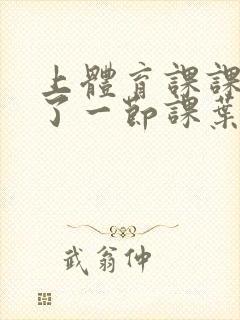 上體育課課
了一節課葉
武翁仲